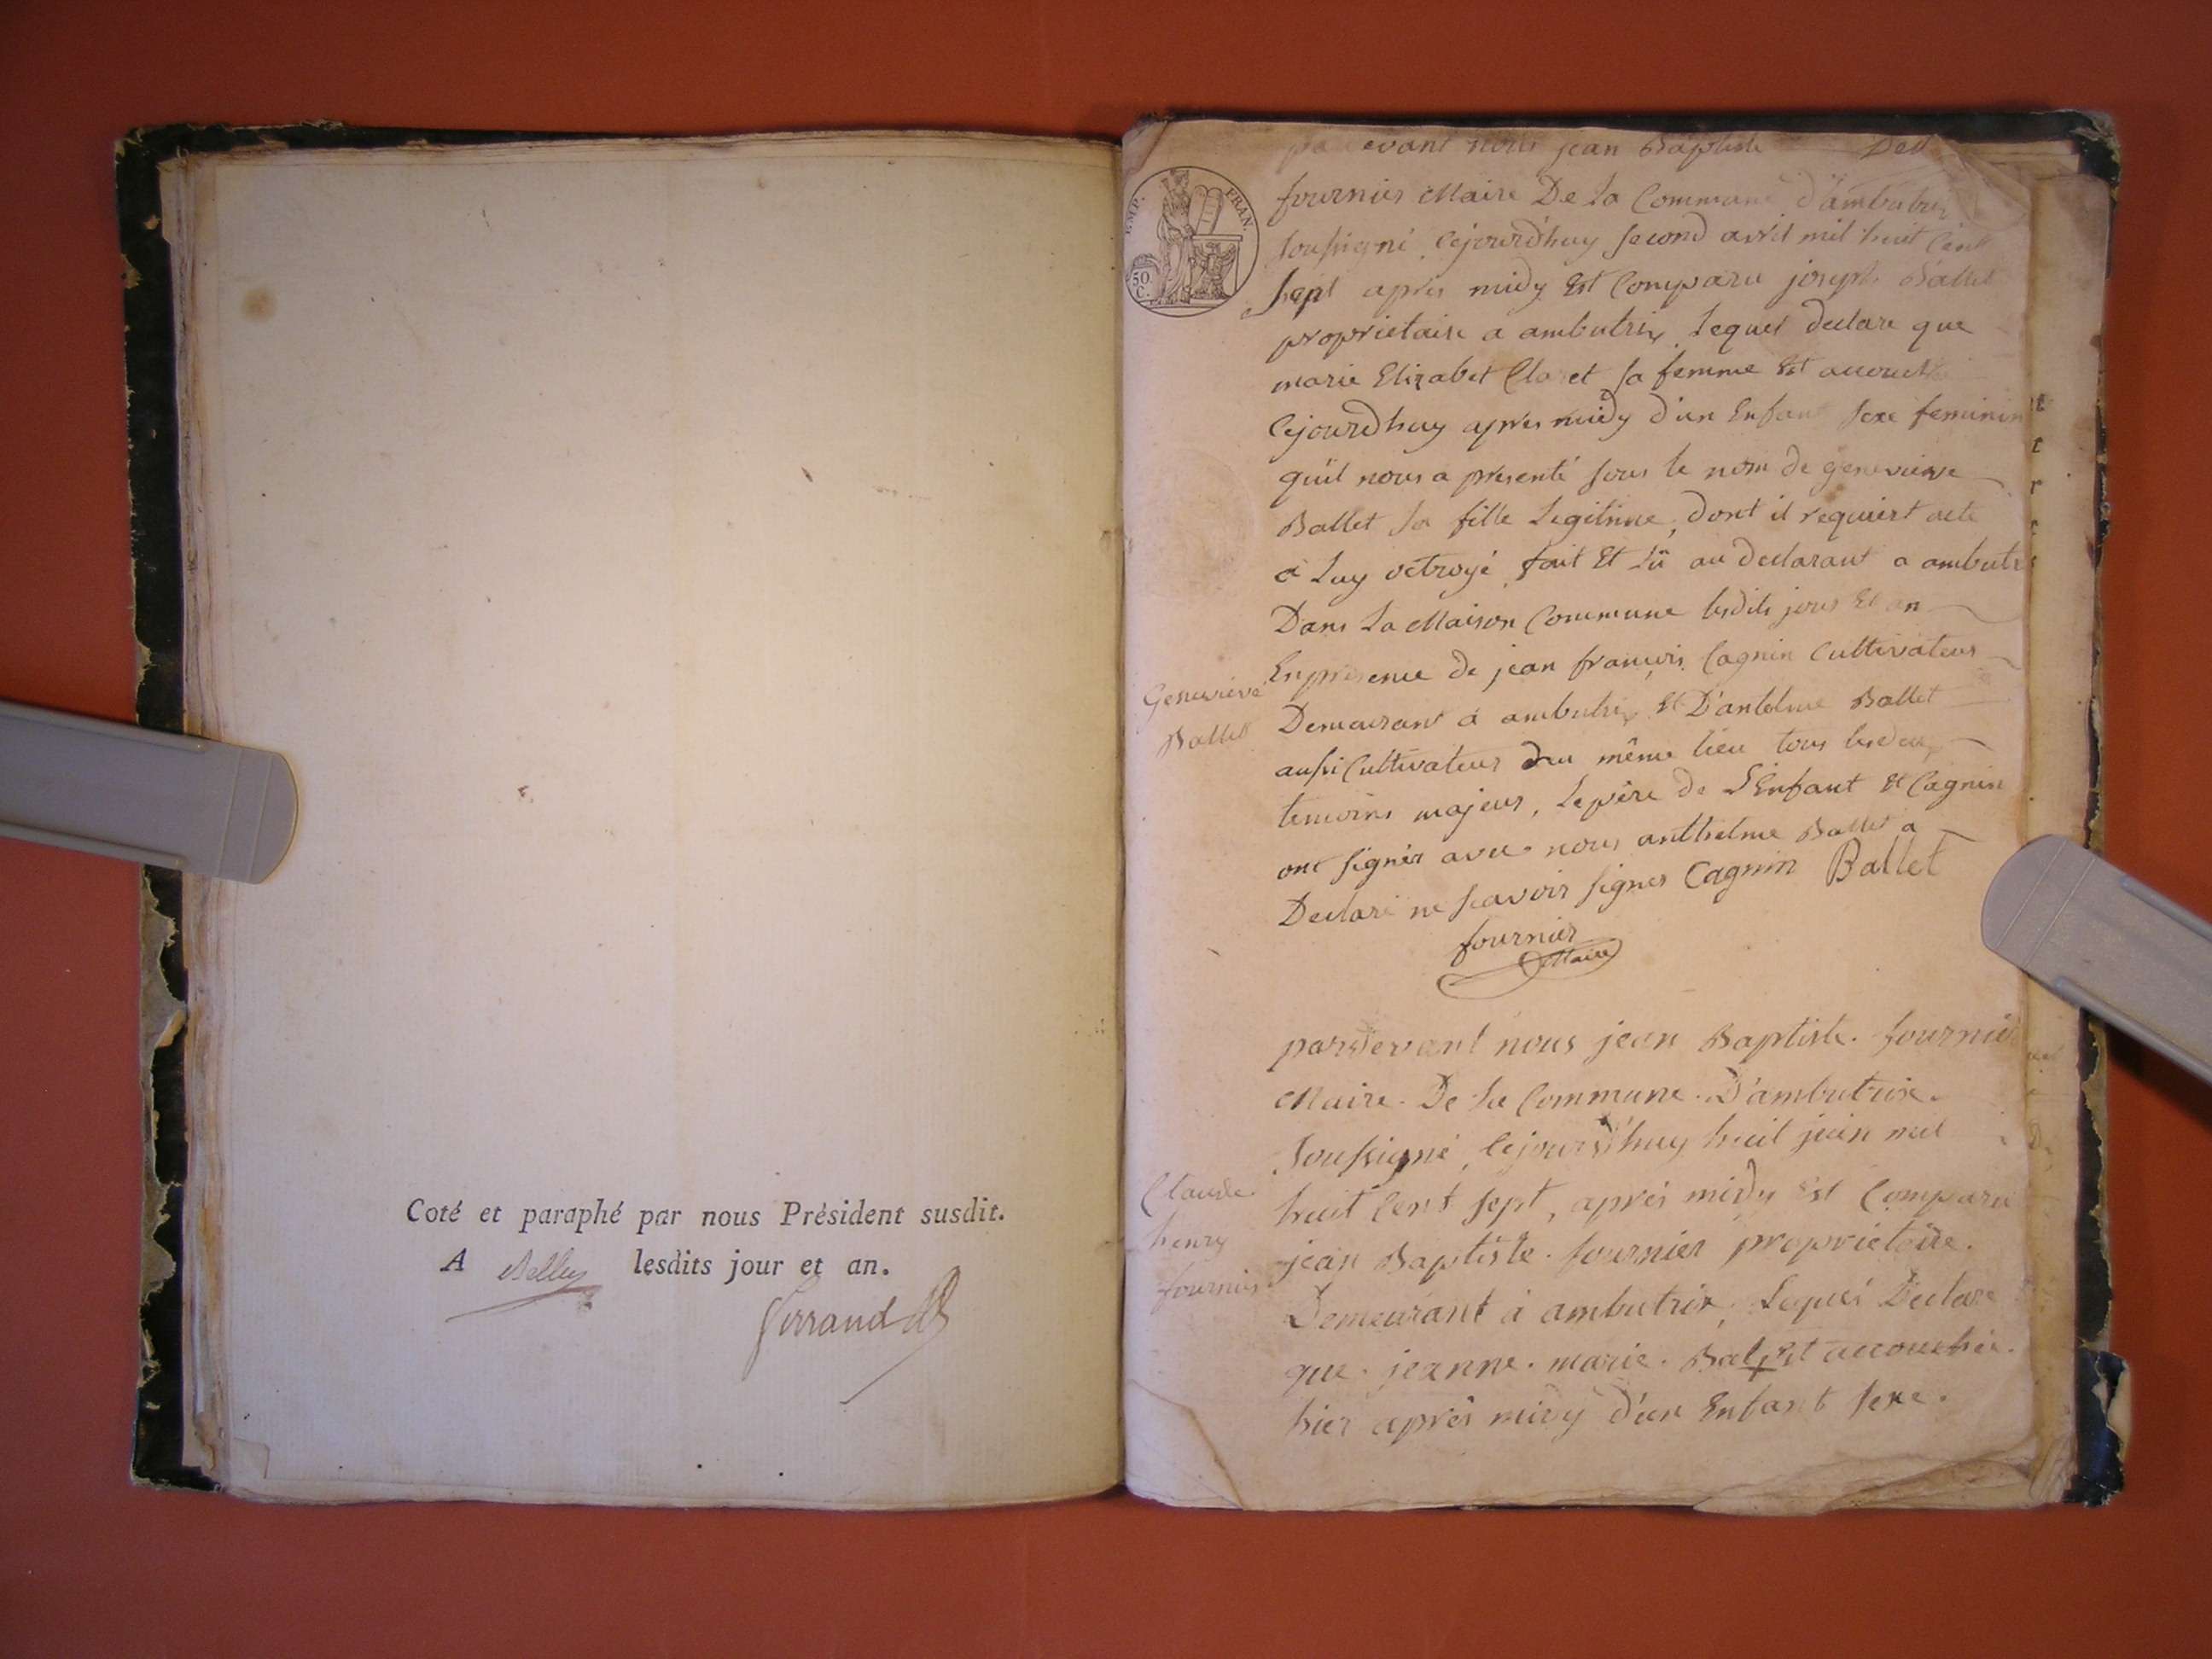 Coté et paraphé par nous Président susdit.
A Belley lesdits jour et an.
EMP. FRAN.
50 C.
evant nous jean Baptiste
fournier Maire De la Commune d'ambutrix
soussigné, Cejourd'huy second avril mil huit Cent
sept apres midy Est Comparu joseph Ballet
proprietaire a ambutrix, Lequel declare que
marie Elizabet Claret sa femme Est
Cejourdhuy apres midy d'un Enfant sexe feminin
qu'il nous a presenté sous le nom de genevieve
Ballet sa fille Legitime, dont il requiert acte
a Luy octroyé, fait Et Lû au declarant a ambutr
Dans La Maison Commune lesdits jour Et an
En presence de jean françois Cagnin Cultivateur
Demeurant a ambutrix Et D'antelme Ballet
aussi Cultivateur du même lieu tous les deux
temoins majeur, Le père de L'Enfant Et Cagnin
ont signér avec nous anthelme Ballet a
Declaré ne scavoir signer Cagnin Ballet
fournier
Maire
Genevieve
Ballet
pardevant nous jean Baptiste. fournier
Maire. De la Commune. D'ambutrix.
Soussigné, Cejourd'huy huit juin mil
huit Cent sept, aprés midy Est Comparu
jean Baptiste. fournier proprietaire.
Demeurant à ambutrix, Lequel Declare
que. jeanne. marie. Est accouchée.
hier aprés midy d'un Enfant sexe.
Claude
henry
fournier